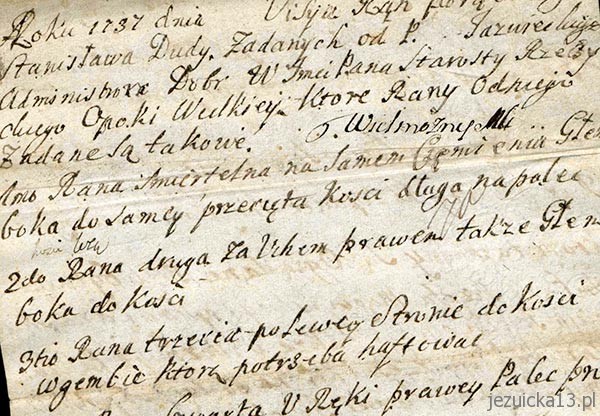 Roku 1737 dnia Visyia Ran
Stanisława Dudy. Zadanych od P. Jazureckiego
Administrora Dobr W Imci Pana Starosty Rzeczy
ckiego Opoki Wielkiey. Ktore Rany Odniego
Zadane są takowe.
1mo Rana Smiertelna na Samem Ciemieniu Głem
boka do samey przecięta Kosci długa na palec
2do Rana druga Za Uchem prawem także Głem
boka do Kosci
3tio Rana trzecia po Lewey Stronie do Kosci
w gembie ktorą potrzeba haftowac
U Ręki prawey Palec
jezuicka13.pl